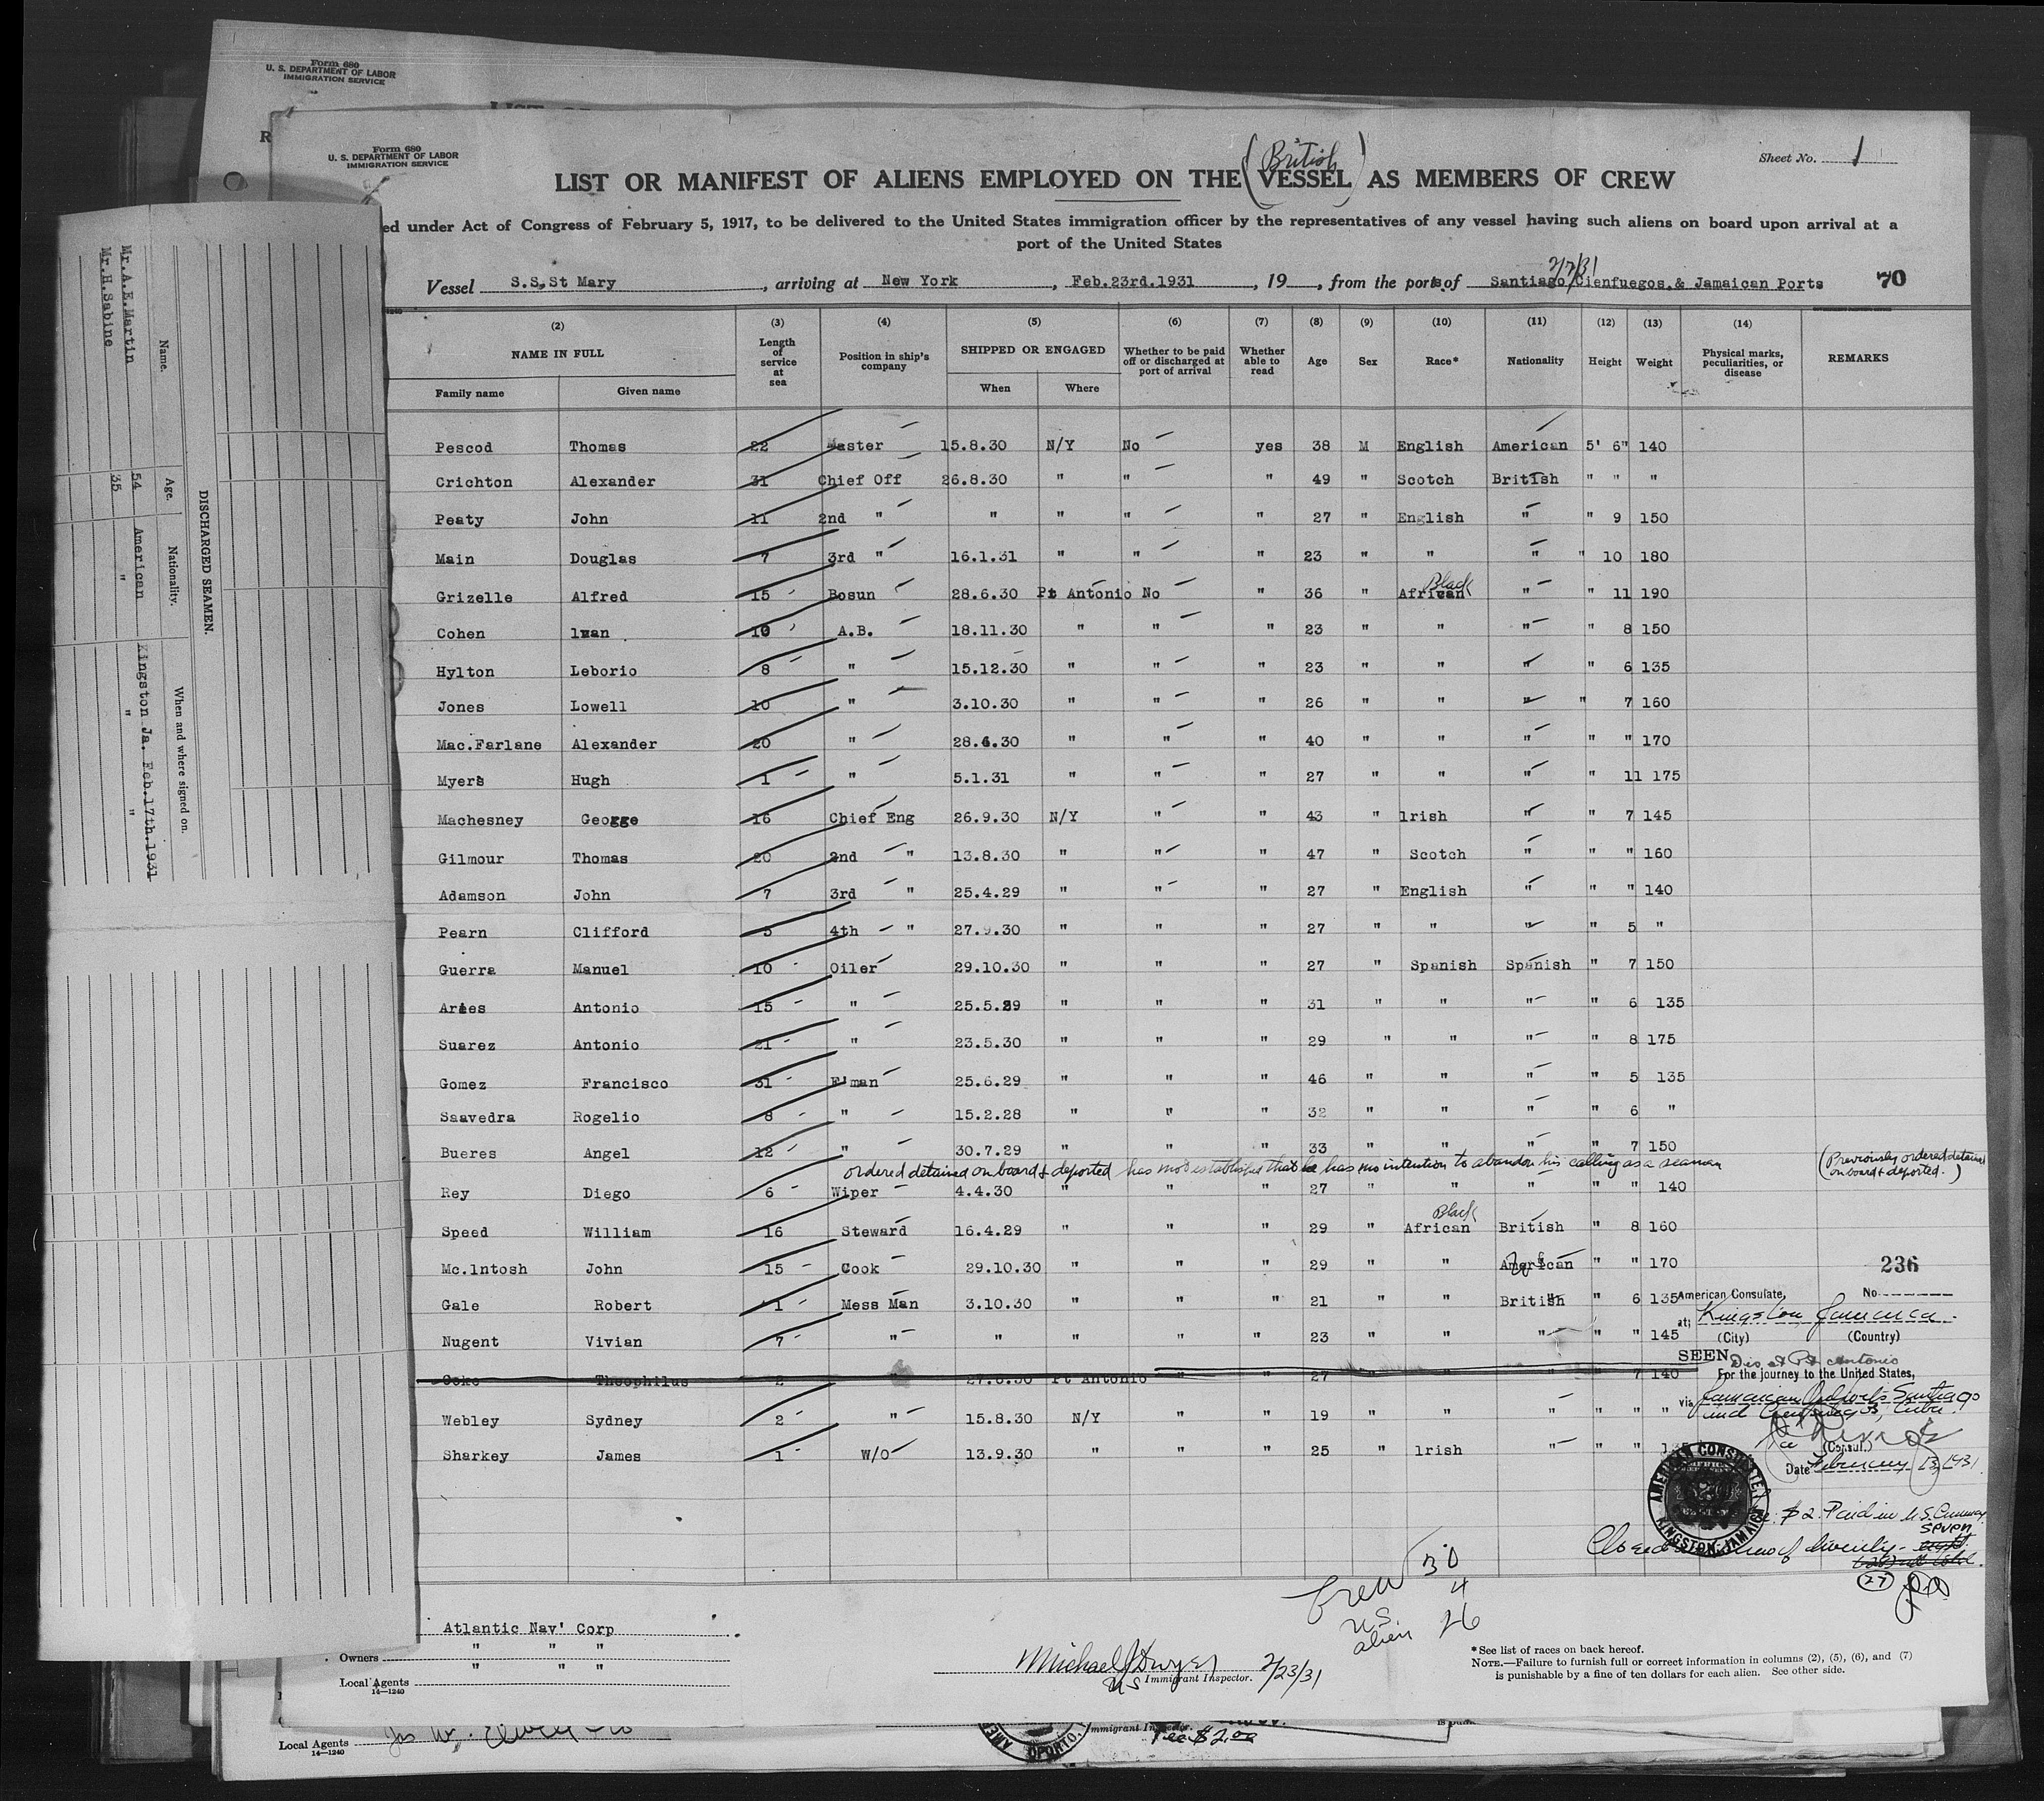 Form 680
U. S. DEPARTMENT OF LABOR
IMMIGRATION SERVICE
Form 680
U. S. DEPARTMENT OF LABOR
IMMIGRATION SERVICE
Sheet No. 1
(British)
LIST OR MANIFEST OF ALIENS EMPLOYED ON THE VESSEL AS MEMBERS OF CREW
ed under Act of Congress of February 5, 1917, to be delivered to the United States immigration officer by the representatives of any vessel having such aliens on board upon arrival at a
port of the United States
Vessel S.S,St Mary , arriving at New York , Feb.23rd.1931 , 19 , from the ports of Santiago, Cienfuegos,& Jamaican Ports 70
(2) (3) (4) (5) (6) (7) (8) (9) (10) (11) (12) (13) (14)
NAME IN FULL Length of service at sea Position in ship's company SHIPPED OR ENGAGED Whether to be paid off or discharged at port of arrival Whether able to read Age Sex Race* Nationality Height Weight Physical marks, peculiarities, or disease REMARKS
Family name Given name When Where
Pescod Thomas 22 Master 15.8.30 N/Y No yes 38 M English American 5' 6" 140
Crichton Alexander 31 Chief Off 26.8.30 " " " 49 " Scotch British " " "
Peaty John 11 2nd " " " " " 27 " English " " 9 150
Main Douglas 7 3rd " 16.1.31 " " " 23 " " " " 10 180
Black
Grizelle Alfred 15 Bosun 28.6.30 Pt Antonio No " 36 " African " " 11 190
Cohen 10 A.B. 18.11.30 " " " 23 " " " " 8 150
Hylton Leborio 8 " 15.12.30 " " " 23 " " " " 6 135
Jones Lowell 10 " 3.10.30 " " " 26 " " " " 7 160
Mac.Farlane Alexander 20 " 28.6.30 " " " 40 " " " " " 170
Myers Hugh 1 " 5.1.31 " " " 27 " " " " 11 175
Machesney George 16 Chief Eng 26.9.30 N/Y " " 43 " lrish " " 7 145
Gilmour Thomas 20 2nd " 13.8.30 " " " 47 " Scotch " " " 160
Adamson John 7 3rd " 25.4.29 " " " 27 " English " " " 140
Pearn Clifford 5 4th " 27.9.30 " " " 27 " " " " 5 "
Guerra Manuel 10 Oiler 29.10.30 " " " 27 " Spanish Spanish " 7 150
Antonio 15 " 25.5.29 " " " 31 " " " " 6 135
Suarez Antonio 21 " 23.5.30 " " " 29 " " " " 8 175
Gomez Francisco 31 F'man 25.6.29 " " " 46 " " " " 5 135
Saavedra Rogelio 8 " 15.2.28 " " " 32 " " " " 6 "
Bueres Angel 12 " 30.7.29 " " " 33 " " " " 7 150
ordered detained on board & deported has not established that he has no intention to abandon his calling as a seaman (Previously ordered detained on board & deported.)
Rey Diego 6 Wiper 4.4.30 " " " 27 " " " " " 140
Black
Speed William 16 Steward 16.4.29 " " " 29 " African British " 8 160
Mc.lntosh John 15 Cook 29.10.30 " " " 29 " " American " " 170
236
Gale Robert 1 Mess Man 3.10.30 " " " 21 " " British " 6 135
Nugent Vivian 7 " " " " " 23 " " " " " 145
Coke Theophilus 2 " 27.6.30 Pt Antonio " " 27 " " " " 7 140
Webley Sydney 2 " 15.8.30 N/Y " " 19 " " " " " "
Sharkey James 1 W/O 13.9.30 " " " 25 " lrish " " "
American Consulate, No
at; Kingston Jamaica.
(City) (Country)
SEEN Dis at Pt Antonio
For the journey to the United States,
via Jamaican Outports Santiago
and Cienfuegos, Cuba.
(Consul.)
Date February 13, 1931
AMERICAN CONSULATE, KINGSTON, JAMAICA
$2 Paid in U.S. Currency
Closed
twenty-
seven
eight
(27)
Crew 30
U.S. 4
alien 26
Atlantic Nav' Corp
" " "
Owners " " "
Local Agents
14—1240
Michael J Dwyer 2/23/31
US Immigrant Inspector.
*See list of races on back hereof.
NOTE.—Failure to furnish full or correct information in columns (2), (5), (6), and (7)
is punishable by a fine of ten dollars for each alien. See other side.
DISCHARGED SEAMEN.
Name. Age. Nationality. When and where signed on.
Mr.A.E.Martin 54 American Kingston Ja. Feb.17th.1931
Mr.H.Sabine 35 " " "
Local Agents
14—1240
Immigrant Inspector.
OPORTO
Fee $2.00